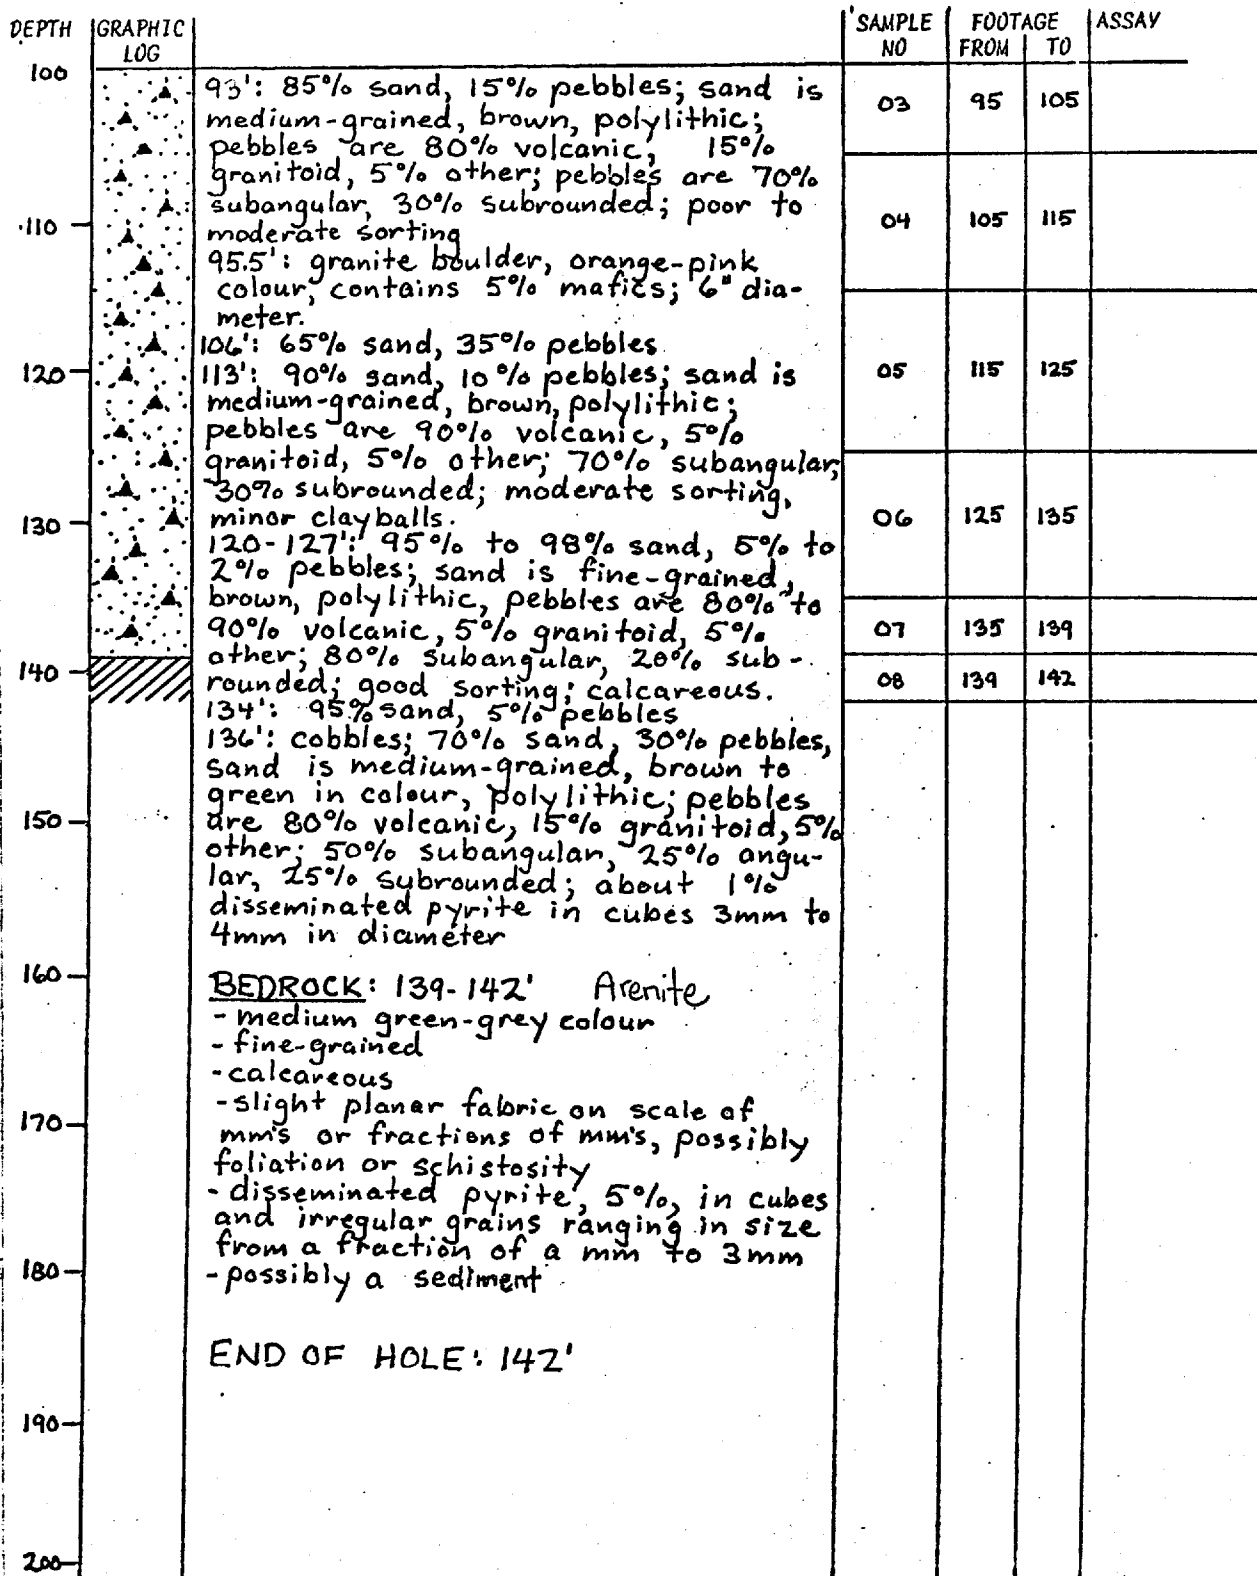 DEPTH GRAPHIC LOG SAMPLE NO FOOTAGE FROM TO ASSAY
100
93': 85% sand, 15% pebbles; sand is
03 95 105
medium-grained, brown, polylithic;
pebbles are 80% volcanic, 15%
granitoid, 5% other; pebbles are 70%
subangular, 30% subrounded; poor to
110 04 105 115
moderate sorting
95.5': granite boulder, orange-pink
colour, contains 5% mafics; 6" dia-
meter.
106': 65% sand, 35% pebbles
120 113': 90% sand, 10% pebbles; sand is 05 115 125
medium-grained, brown, polylithic;
pebbles are 90% volcanic, 5%
granitoid, 5% other; 70% subangular,
30% subrounded; moderate sorting,
130 minor clayballs. 06 125 135
120-127': 95% to 98% sand, 5% to
2% pebbles; sand is fine-grained,
brown, polylithic, pebbles are 80% to
90% volcanic, 5% granitoid, 5% 07 135 139
other; 80% subangular, 20% sub-
140 rounded; good sorting; calcareous. 08 139 142
134': 95% sand, 5% pebbles
136': cobbles; 70% sand, 30% pebbles,
sand is medium-grained, brown to
green in colour, polylithic; pebbles
150 are 80% volcanic, 15% granitoid, 5%
other; 50% subangular, 25% angu-
lar, 25% subrounded; about 1%
disseminated pyrite in cubes 3mm to
4mm in diameter
160 BEDROCK: 139-142' Arenite
- medium green-grey colour
- fine-grained
- calcareous
- slight planar fabric on scale of
170 mm's or fractions of mm's, possibly
foliation or schistosity
- disseminated pyrite, 5%, in cubes
and irregular grains ranging in size
from a fraction of a mm to 3mm
180 - possibly a sediment
END OF HOLE: 142'
190
200